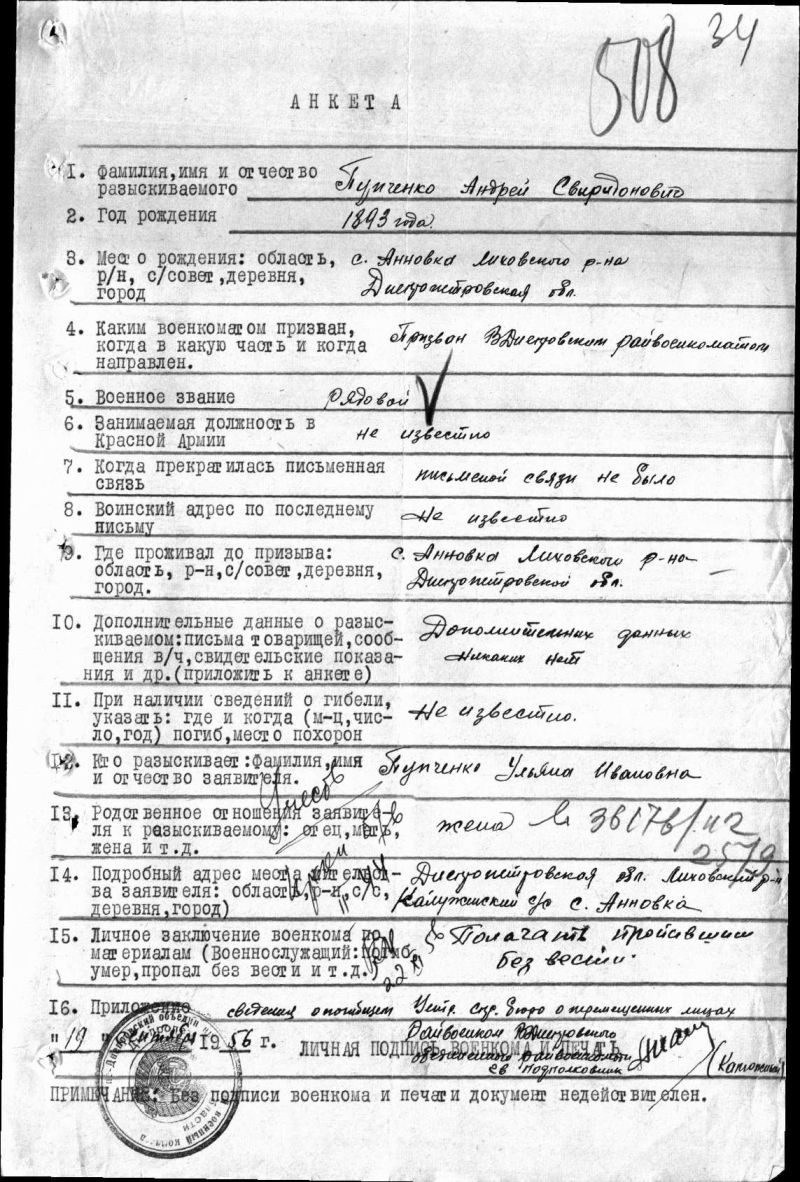 508 34
АНКЕТА
1. Фамилия,имя и отчество
разыскиваемого Пупченко Андрей Свиридонович
2. Год рождения 1893 года.
3. Место рождения: область, с. Анновка Лиховского р-на
р/н, с/совет,деревня, Днепропетровская обл.
город
4. Каким военкоматом призван, Призван В Днепровским райвоенкоматом
когда в какую часть и когда
направлен.
5. Военное звание рядовой
6. Занимаемая должность в
Красной Армии не известно
7. Когда прекратилась письменная
связь письменной связи не было
8. Воинский адрес по последнему
письму Не известно
9. Где проживал до призыва: с. Анновка Лиховского р-на
область, р-н,с/совет,деревня, Днепропетровской обл.
город.
10. Дополнительные данные о разыс- Дополнительных данных
киваемом:письма товарищей,сооб- никаких нет
щения в/ч,свидетельские показа-
ния и др.(приложить к анкете)
11. При наличии сведений о гибели,
указать: где и когда (м-ц,чис- Не известно.
ло,год) погиб,место похорон
12. Кто разыскивает:Фамилия,имя Пупченко Ульяна Ивановна
и отчество заявителя.
13. Родственное отношения заявите-
ля к разыскиваемому: отец,мать, жена 36176/и2
жена и т.д. 25/9
14. Подробный адрес места жительст- Днепропетровская обл. Лиховский р-н
ва заявителя: область,р-н,с/с, Калужинский с/с с. Анновка
деревня,город)
15. Личное заключение военкома по Полагать пропавшим
материалам (Военнослужащий:погиб, без вести.
умер,пропал без вести и т.д.)
16. Приложение сведения о погибшем Центр. спр. бюро о перемещенных лицах
"19 " 1956 г. ЛИЧНАЯ ПОДПИСЬ ВОЕНКОМА И ПЕЧАТЬ
Райвоенком В Днепровского
объединенного райвоенкомата
подполковник
ПРИМЕЧАНИЕ: Без подписи военкома и печати документ недействителен.